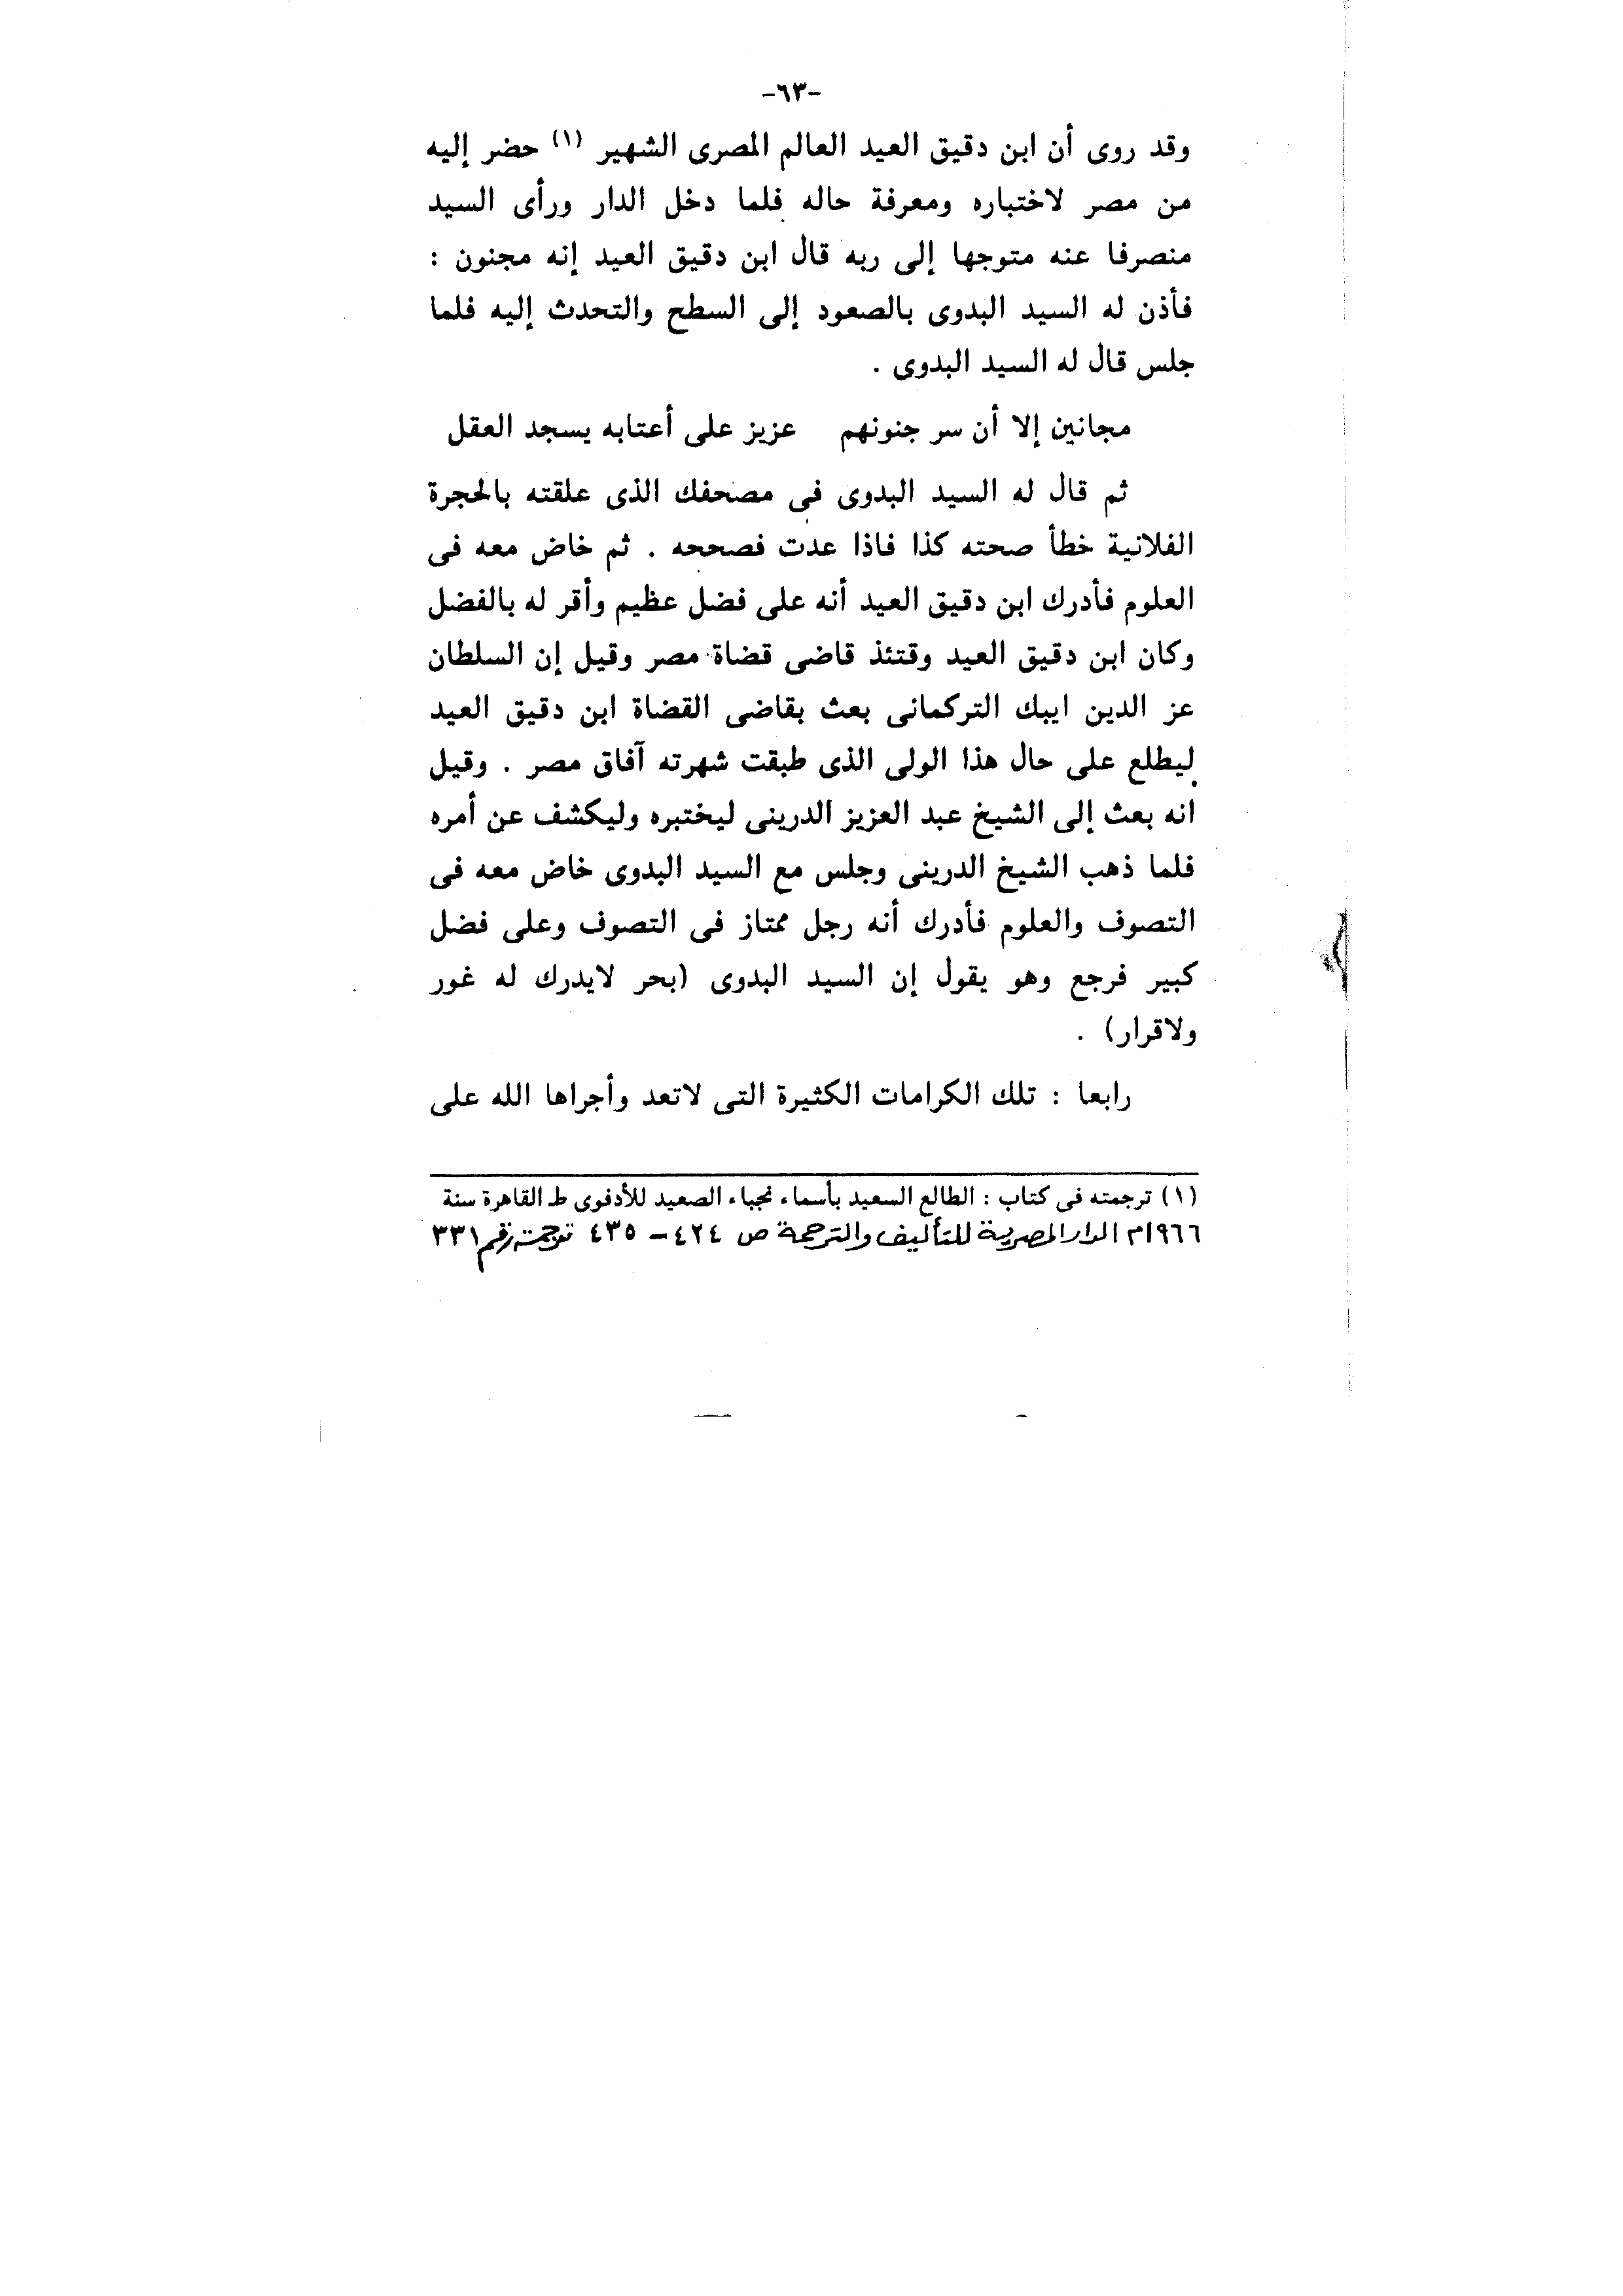 -٦٣-
وقد روى أن ابن دقيق العيد العالم المصرى الشهير (١) حضر إليه
من مصر لاختباره ومعرفة حاله فلما دخل الدار ورأى السيد
منصرفا عنه متوجها إلى ربه قال ابن دقيق العيد إنه مجنون :
فأذن له السيد البدوى بالصعود إلى السطح والتحدث إليه فلما
جلس قال له السيد البدوى .
مجانين إلا أن سر جنونهم عزيز على أعتابه يسجد العقل
ثم قال له السيد البدوى فى مصحفك الذى علقته بالحجرة
الفلانية خطأ صحته كذا فاذا عدت فصححه . ثم خاض معه فى
العلوم فأدرك ابن دقيق العيد أنه على فضل عظيم وأقر له بالفضل
وكان ابن دقيق العيد وقتئذ قاضى قضاة مصر وقيل إن السلطان
عز الدين ايبك التركمانى بعث بقاضى القضاة ابن دقيق العيد
ليطلع على حال هذا الولى الذى طبقت شهرته آفاق مصر . وقيل
انه بعث إلى الشيخ عبد العزيز الدرينى ليختبره وليكشف عن أمره
فلما ذهب الشيخ الدرينى وجلس مع السيد البدوى خاض معه فى
التصوف والعلوم فأدرك أنه رجل ممتاز فى التصوف وعلى فضل
كبير فرجع وهو يقول إن السيد البدوى (بحر لايدرك له غور
ولاقرار) .
رابعا : تلك الكرامات الكثيرة التى لاتعد وأجراها الله على
(١) ترجمته فى كتاب : الطالع السعيد بأسماء نجباء الصعيد للأدفوى ط القاهرة سنة
١٩٦٦م الدار المصرية للتأليف والترجمة ص ٤٢٤ - ٤٣٥ ترجمة رقم ٣٣١